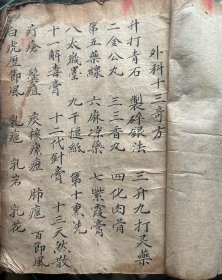 外科十三奇方
升打青石　製砒銀法　三升九打灵藥
二金公九　三三香丸　四化肉骨
第五藥線　六麻凉藥　七紫霞膏
八太歲墨　九千搥紙　第十熏洗
十一解毒膏　十二代針膏　十三天然散
疔瘡　鬢疽　痰核瘰癧　肺癰　百節風
白虎歷節風　乳癰　乳岩　乳花